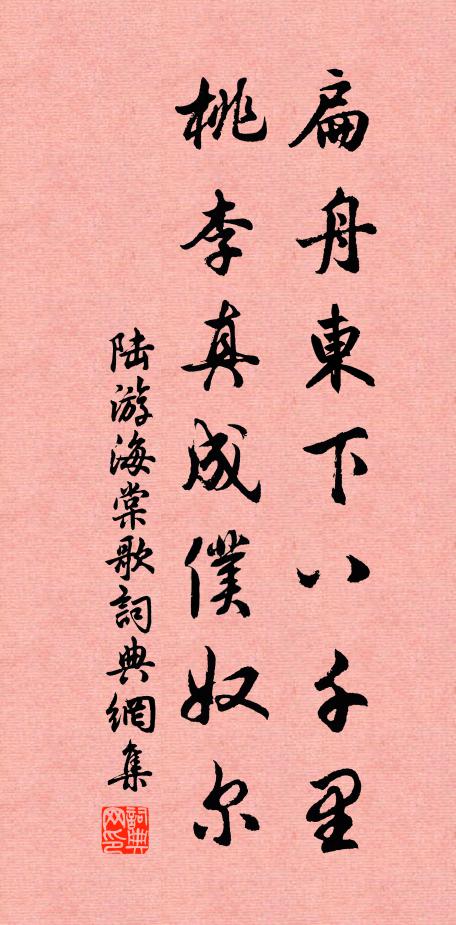 扁舟東下八千里
桃李真成僕奴尔
陆游海棠歌詞典網集
詞典网印